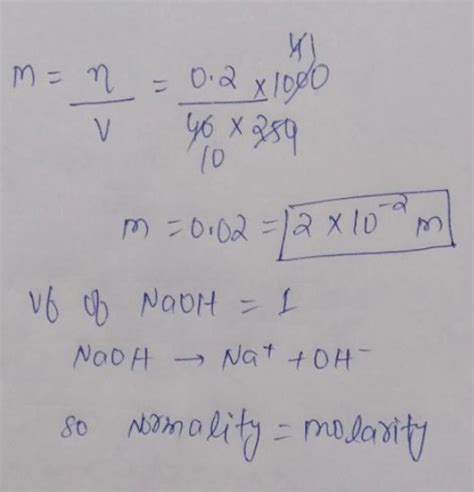 41
m = n/V = 0.2 × 1000 / 40 × 250
10
m = 0.02 = 2 × 10⁻² m
vf of NaOH = 1
NaOH → Na⁺ + OH⁻
so Normality = molarity